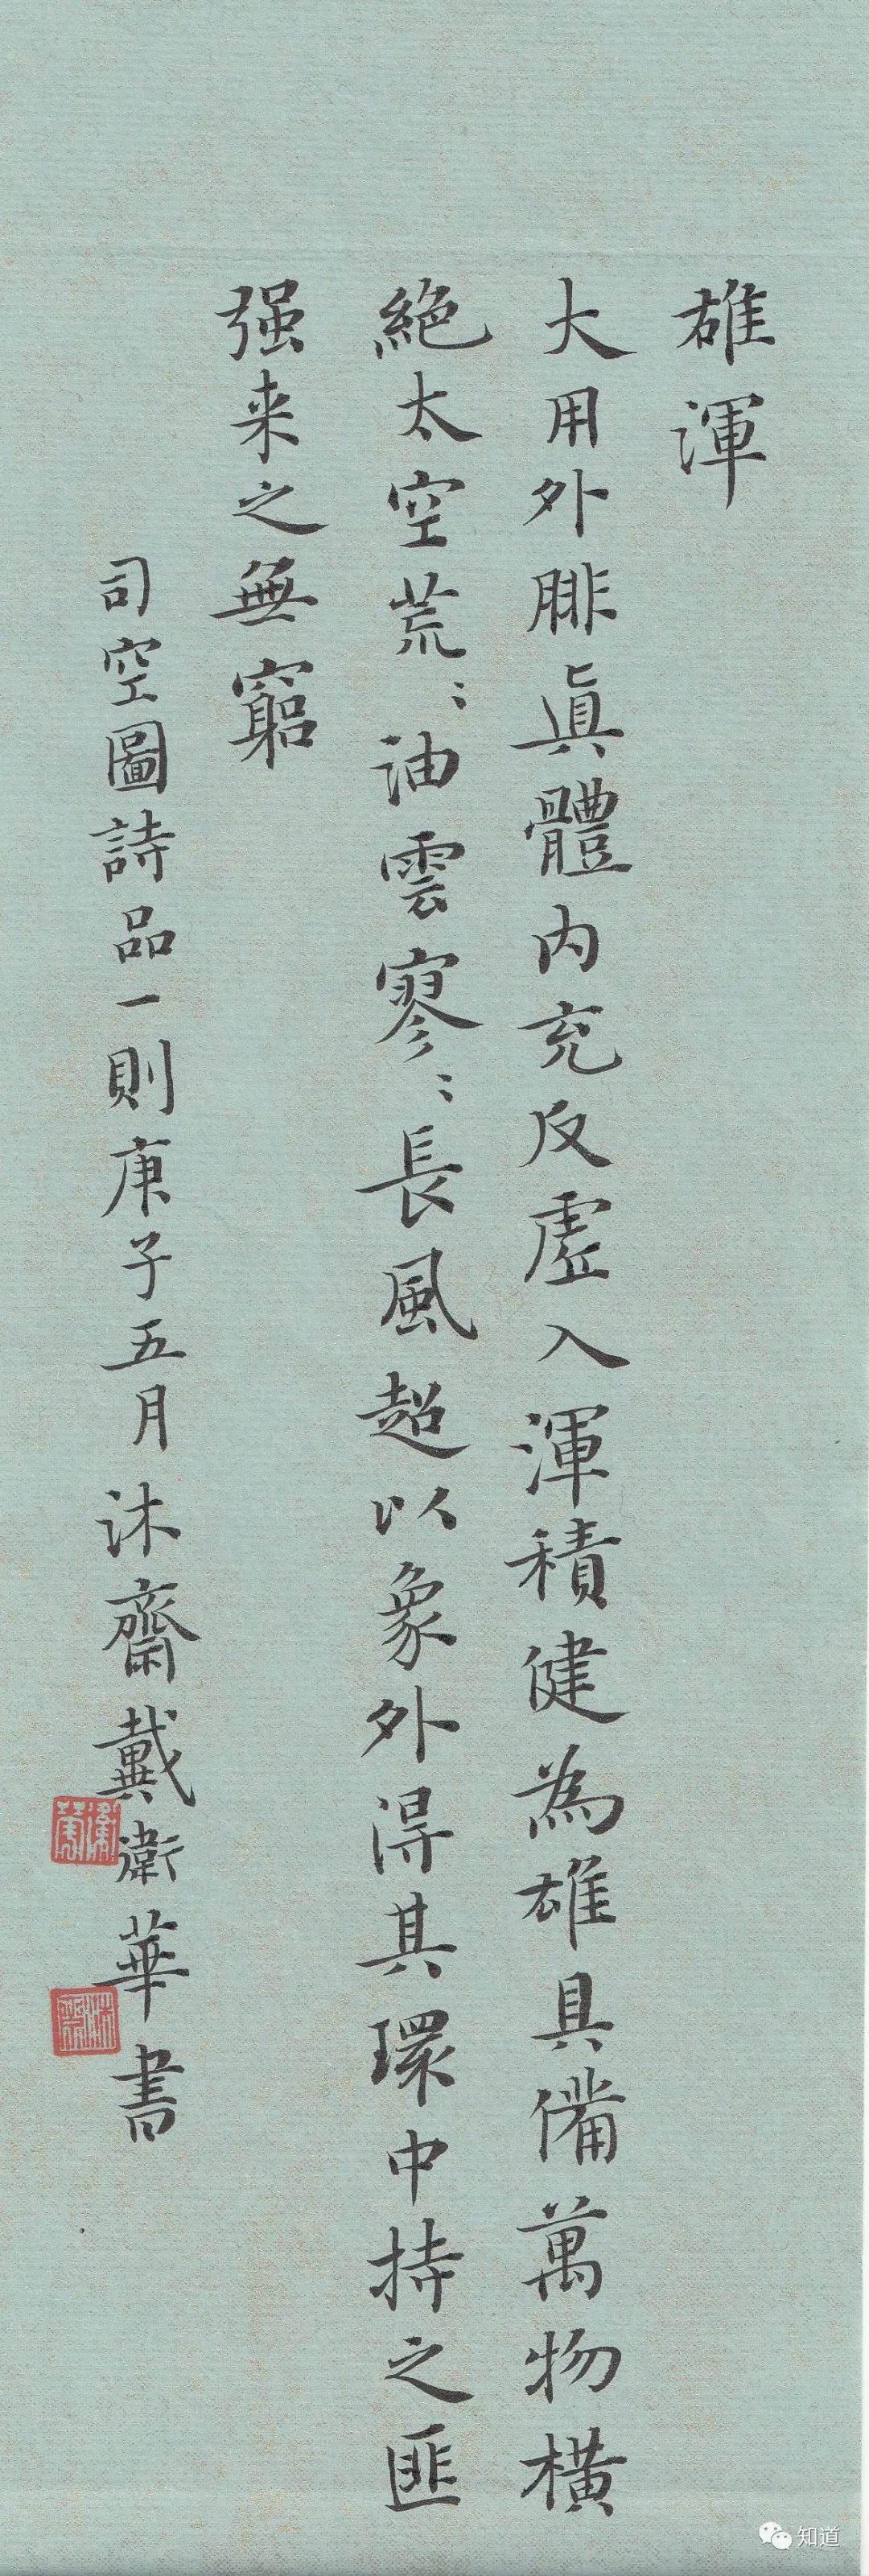 雄渾
大用外腓眞體内充反虛入渾積健為雄具備萬物橫
絶太空荒〻油雲寥〻長風超以象外得其環中持之匪
强来之無窮
司空圖詩品一則庚子五月沐齋戴衛華書
知道